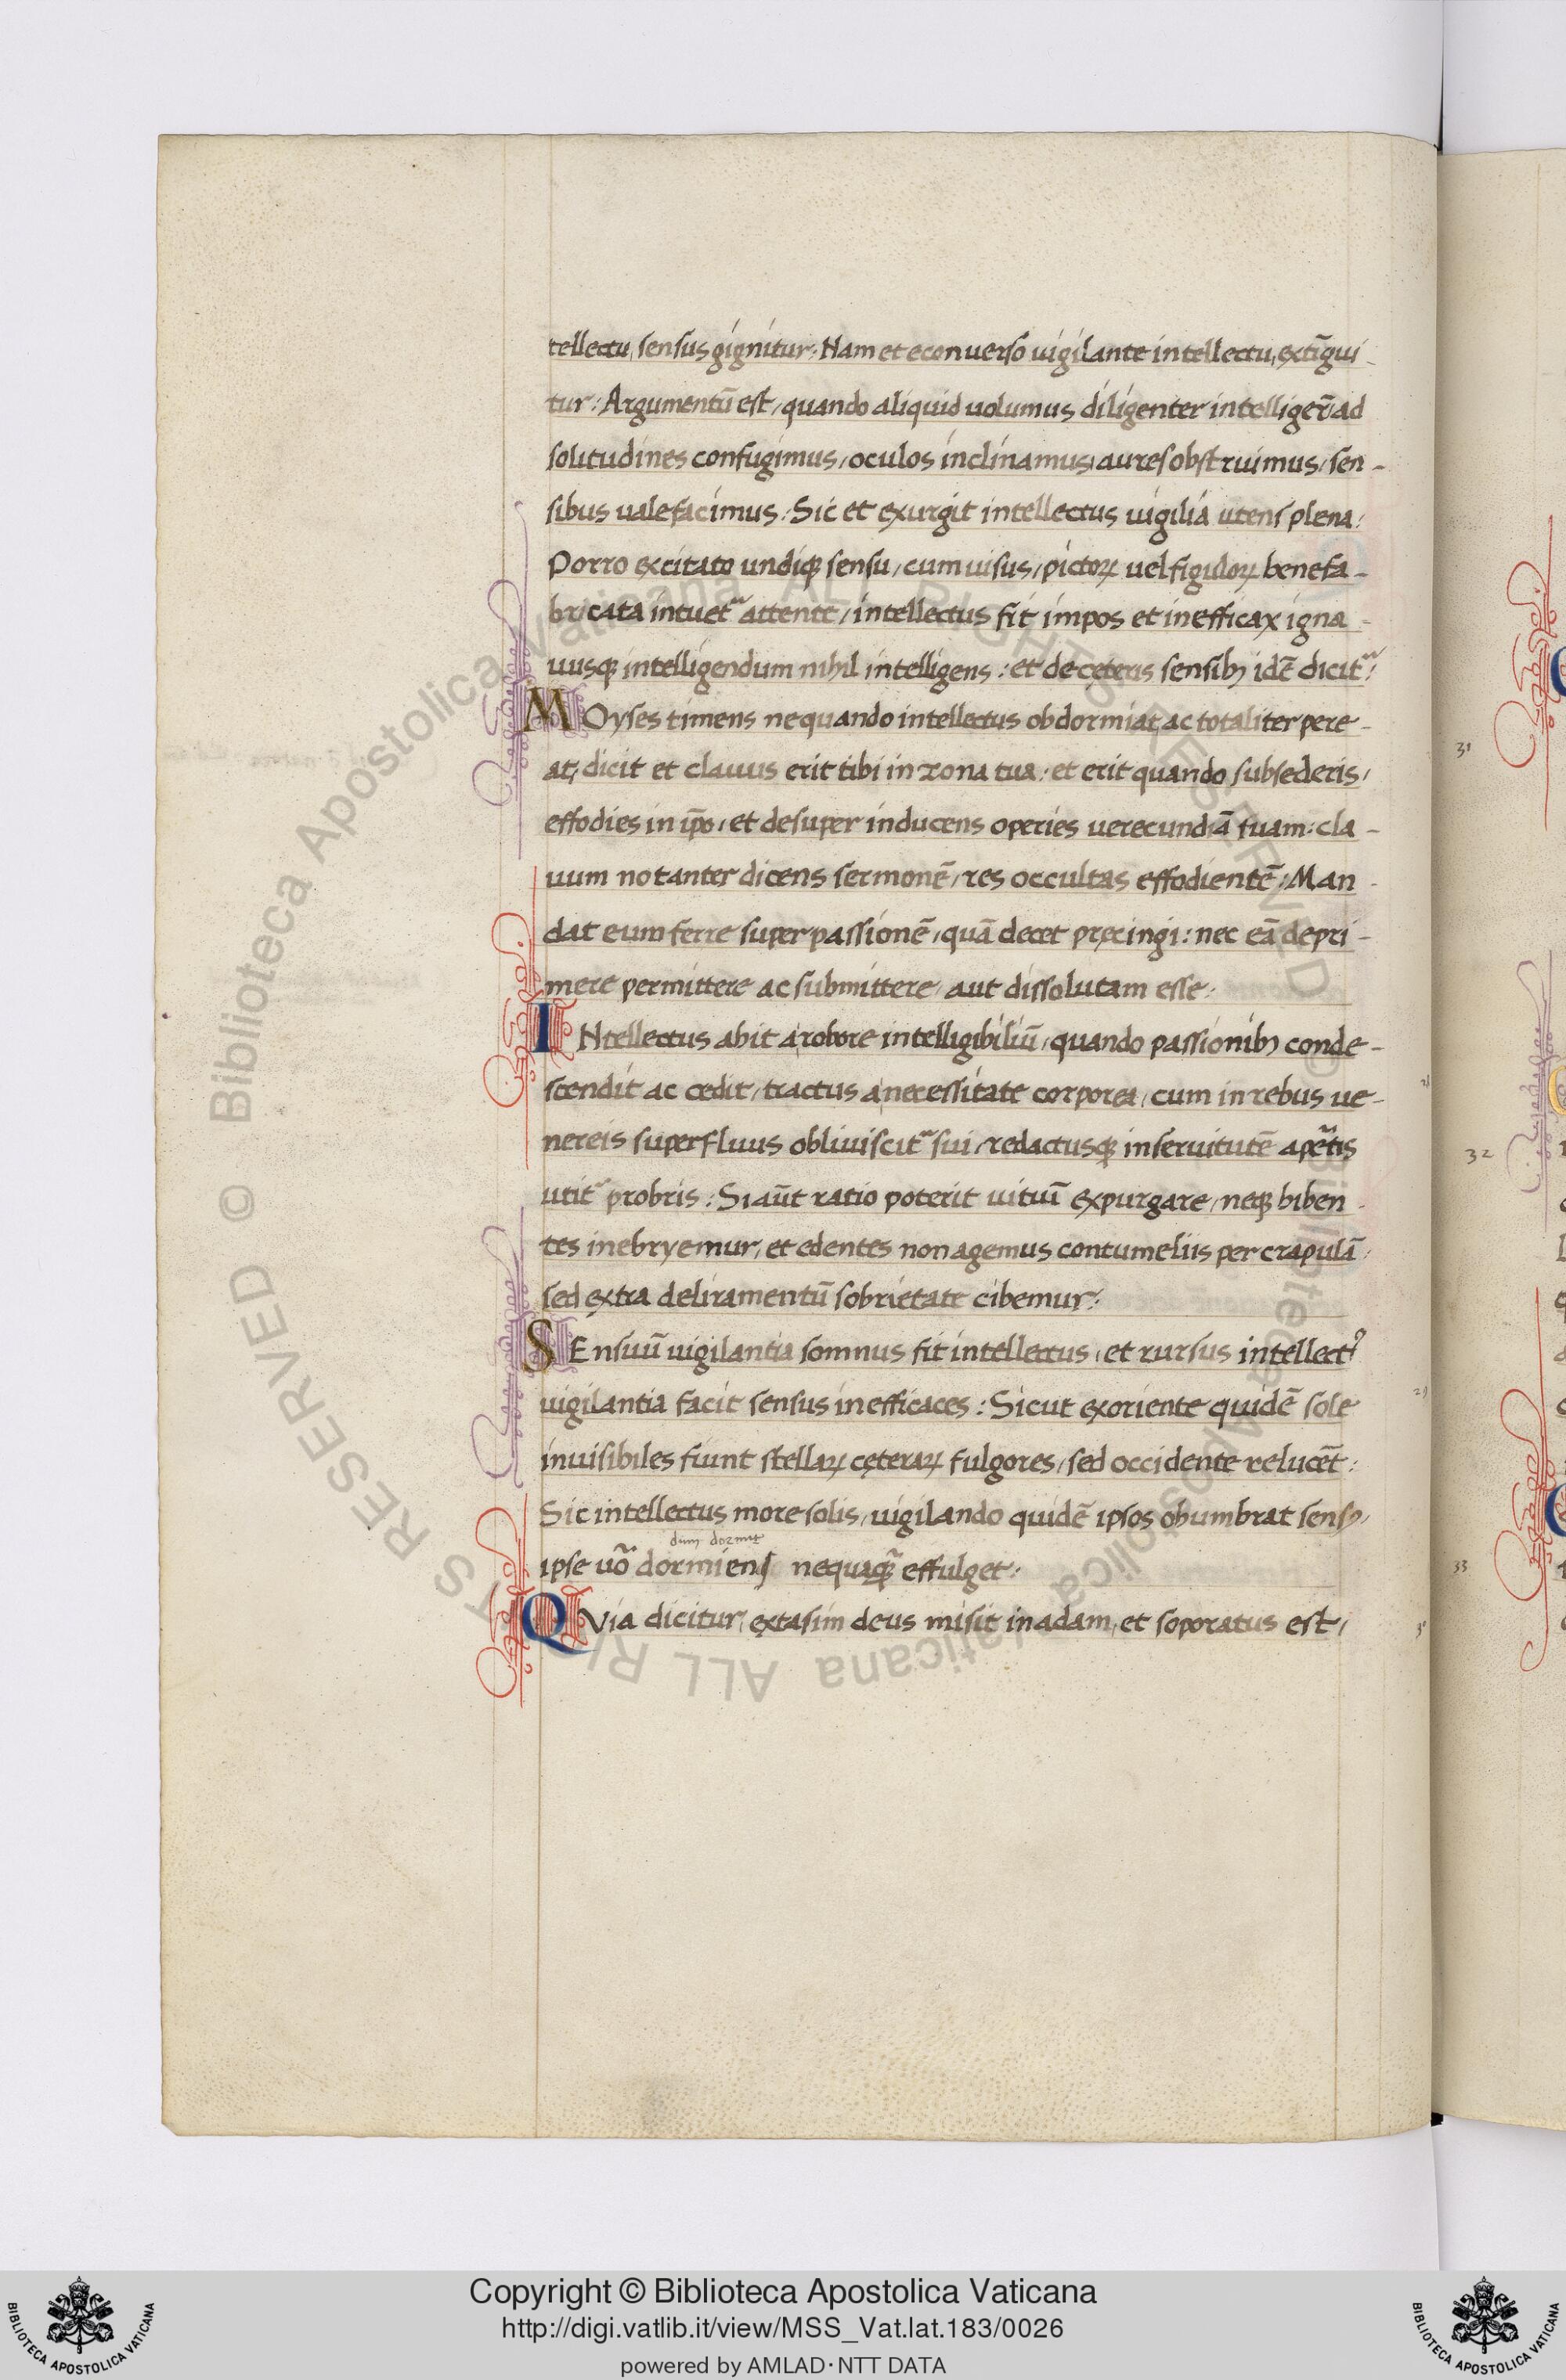 tellectu, sensus gignitur: Nam et econuerso uigilante intellectu, extīgui-
tur: Argumentū est, quando aliquid uolumus diligenter intelligeř ad
solitudines confugimus, oculos inclinamus, aures obstruimus, sen-
sibus ualefacimus: Sic et exurgit intellectus uigilia utens plena:
Porro excitato undiqꝫ sensu, cum uisus, pictoꝝ uel figuloꝝ bene fa-
bricata intuet᷑ attente, intellectus fit impos et inefficax igna-
uusqꝫ intelligendum nihil intelligens: et de cęteris sensibꝫ idē dicit᷑:
MOyses timens nequando intellectus obdormiat, ac totaliter pere-
at, dicit et clauus erit tibi in zona tua: et erit quando subsederis,
effodies in ip̄o, et desuper inducens operies uerecundiā tuam: cla-
uum notanter dicens sermonē, res occultas effodientē: Man-
dat eum ferre super passionē, quā decet pręcingi: nec eā depri-
mere permittere ac submittere, aut dissolutam esse:
INtellectus abit a robore intelligibiliū, quando passionibꝫ conde-
scendit ac cedit, tractus a necessitate corporea, cum in rebus ue-
nereis superfluus obliuiscit᷑ sui, redactusqꝫ in seruitutē apētis
utit᷑ probris: Si aūt ratio poterit uitiū expurgare, neqꝫ biben-
tes inebryemur, et edentes non agemus contumeliis per crapulā:
sed extra deliramentū sobrietate cibemur:
SEnsuū uigilantia somnus fit intellectus, et rursus intellectꝰ
uigilantia facit sensus inefficaces: Sicut exoriente quidē sole
inuisibiles fiunt stellaꝝ cęteraꝝ fulgores, sed occidente relucēt:
Sic intellectus more solis, uigilando quidē ipsos obumbrat sensꝰ,
dum dormit
ipse uō dormiens nequaqꝫ̄ effulget:
QVia dicitur, extasim deus misit in adam, et soporatus est,
31
32
33
© Biblioteca Apostolica Vaticana ALL RIGHTS RESERVED © Biblioteca Apostolica Vaticana ALL RIGHTS RESERVED
Copyright © Biblioteca Apostolica Vaticana
http://digi.vatlib.it/view/MSS_Vat.lat.183/0026
powered by AMLAD·NTT DATA
BIBLIOTECA APOSTOLICA VATICANA
BIBLIOTECA APOSTOLICA VATICANA